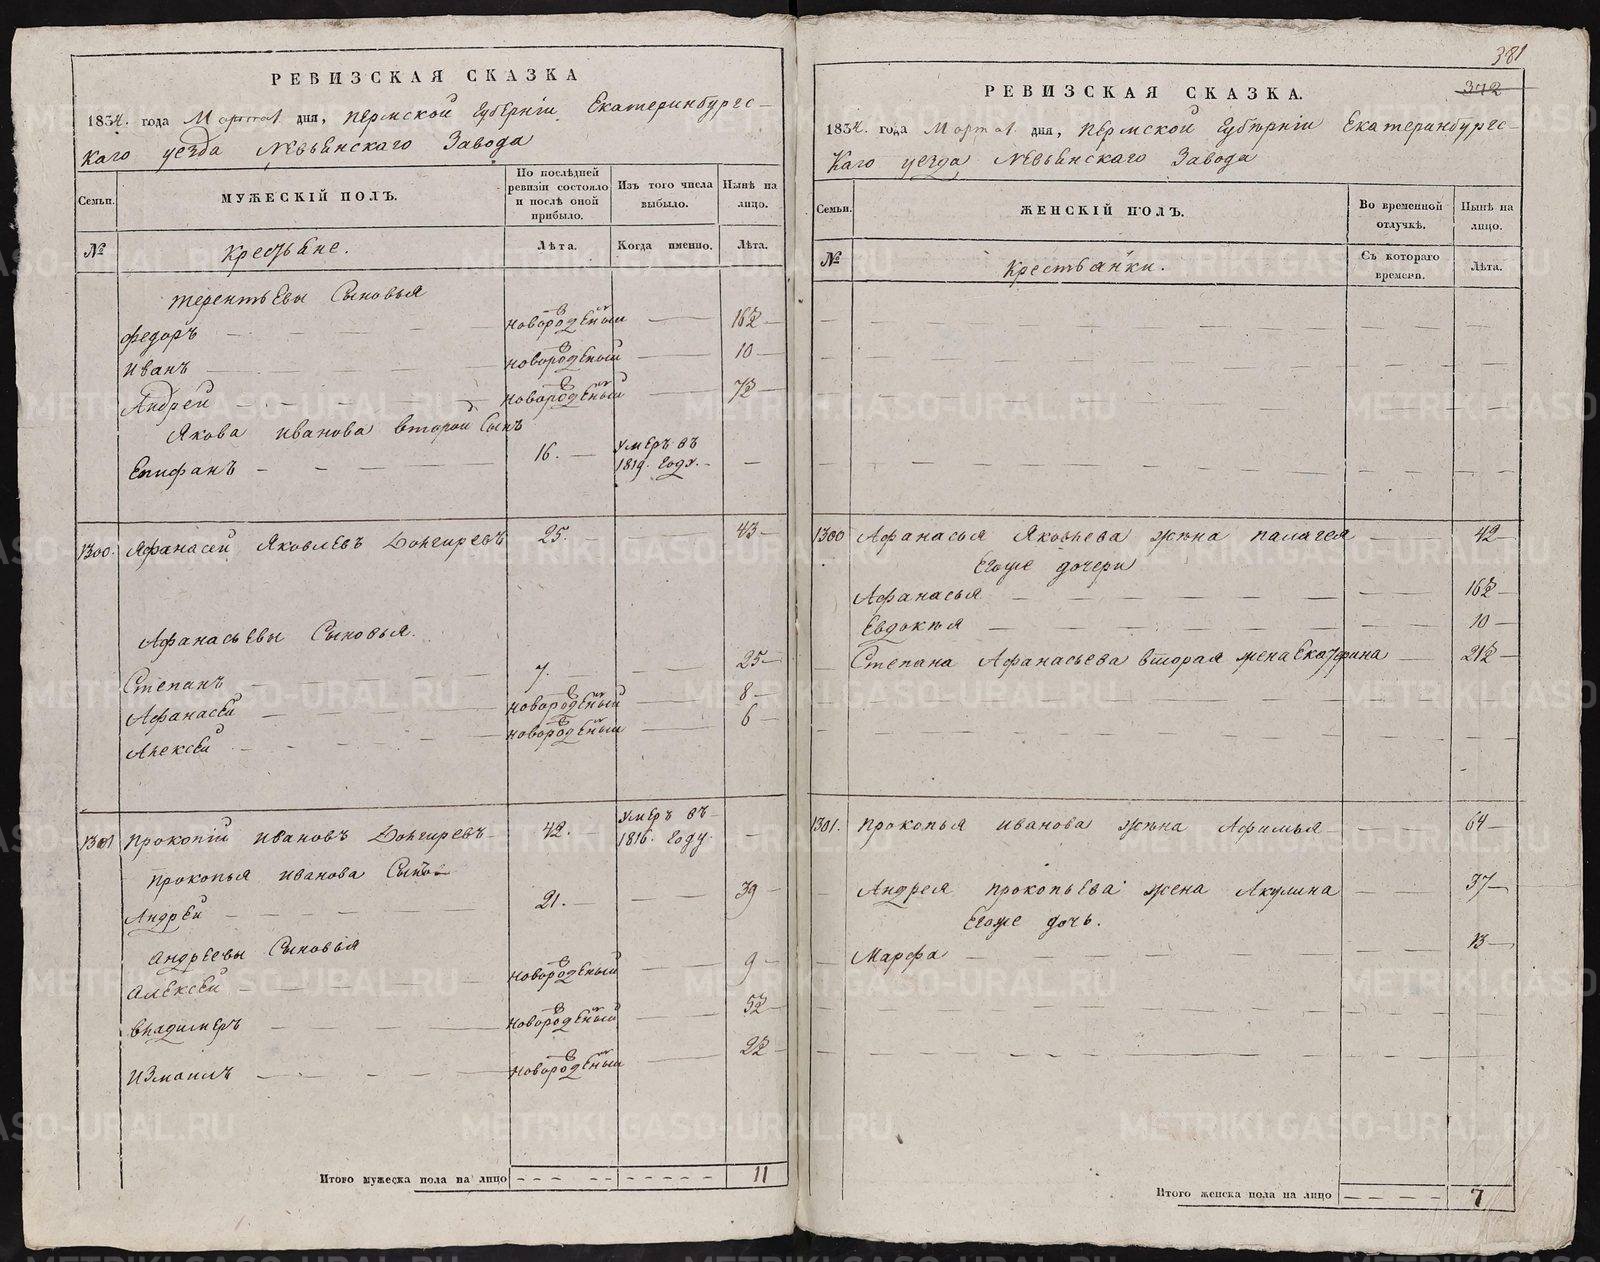 РЕВИЗСКАЯ СКАЗКА
1834. года Марта дня, Пермской Губерніи Екатеринбургс-
каго уезда Невьянскаго Завода
Семьи.
МУЖЕСКІЙ ПОЛЪ.
По послѣдней ревизіи состояло и послѣ оной прибыло.
Изъ того числа выбыло.
Нынѣ на лицо.
№
Крестьяне.
Лѣта.
Когда именно.
Лѣта.
Терентьевы Сыновья
Федоръ новорожденный 16½
Иванъ новорожденный 10
Андрей новорожденный 7½
Якова Иванова второй Сынъ
Епифанъ 16. умеръ въ 1819. Году. —
1300. Афанасей Яковлевъ 25. 43
Афанасьевы Сыновья.
Степанъ 7. 25
Афанасей новорожденный 8
Алексей новорожденный 6
1301 Прокопій Ивановъ 42. умеръ въ 1816. Году. —
Прокопья Иванова Сынъ
Андрей 21. 39
Андреевы Сыновья
Алексей новорожденный 9
Владимеръ новорожденный 5½
Измаилъ новорожденный 2½
Итого мужеска пола на лицо 11
381
372
РЕВИЗСКАЯ СКАЗКА.
1834. года Марта дня, Пермской Губерніи Екатеринбургс-
каго уезда Невьянскаго Завода
Семьи.
ЖЕНСКІЙ ПОЛЪ.
Во временной отлучкѣ.
Нынѣ на лицо.
№
Крестьянки.
Съ котораго времени.
Лѣта.
1300 Афанасья Яковлева жена Палагея 42
Егоже дочери
Афанасья 16½
Евдокія 10
Степана Афанасьева вторая жена Екатерина 21½
1301. Прокопья Иванова жена Афимья 64
Андрея Прокопьева жена Акулина 37
Егоже дочь.
Марфа 13
Итого женска пола на лицо 7
METRIKI.GASO-URAL.RU